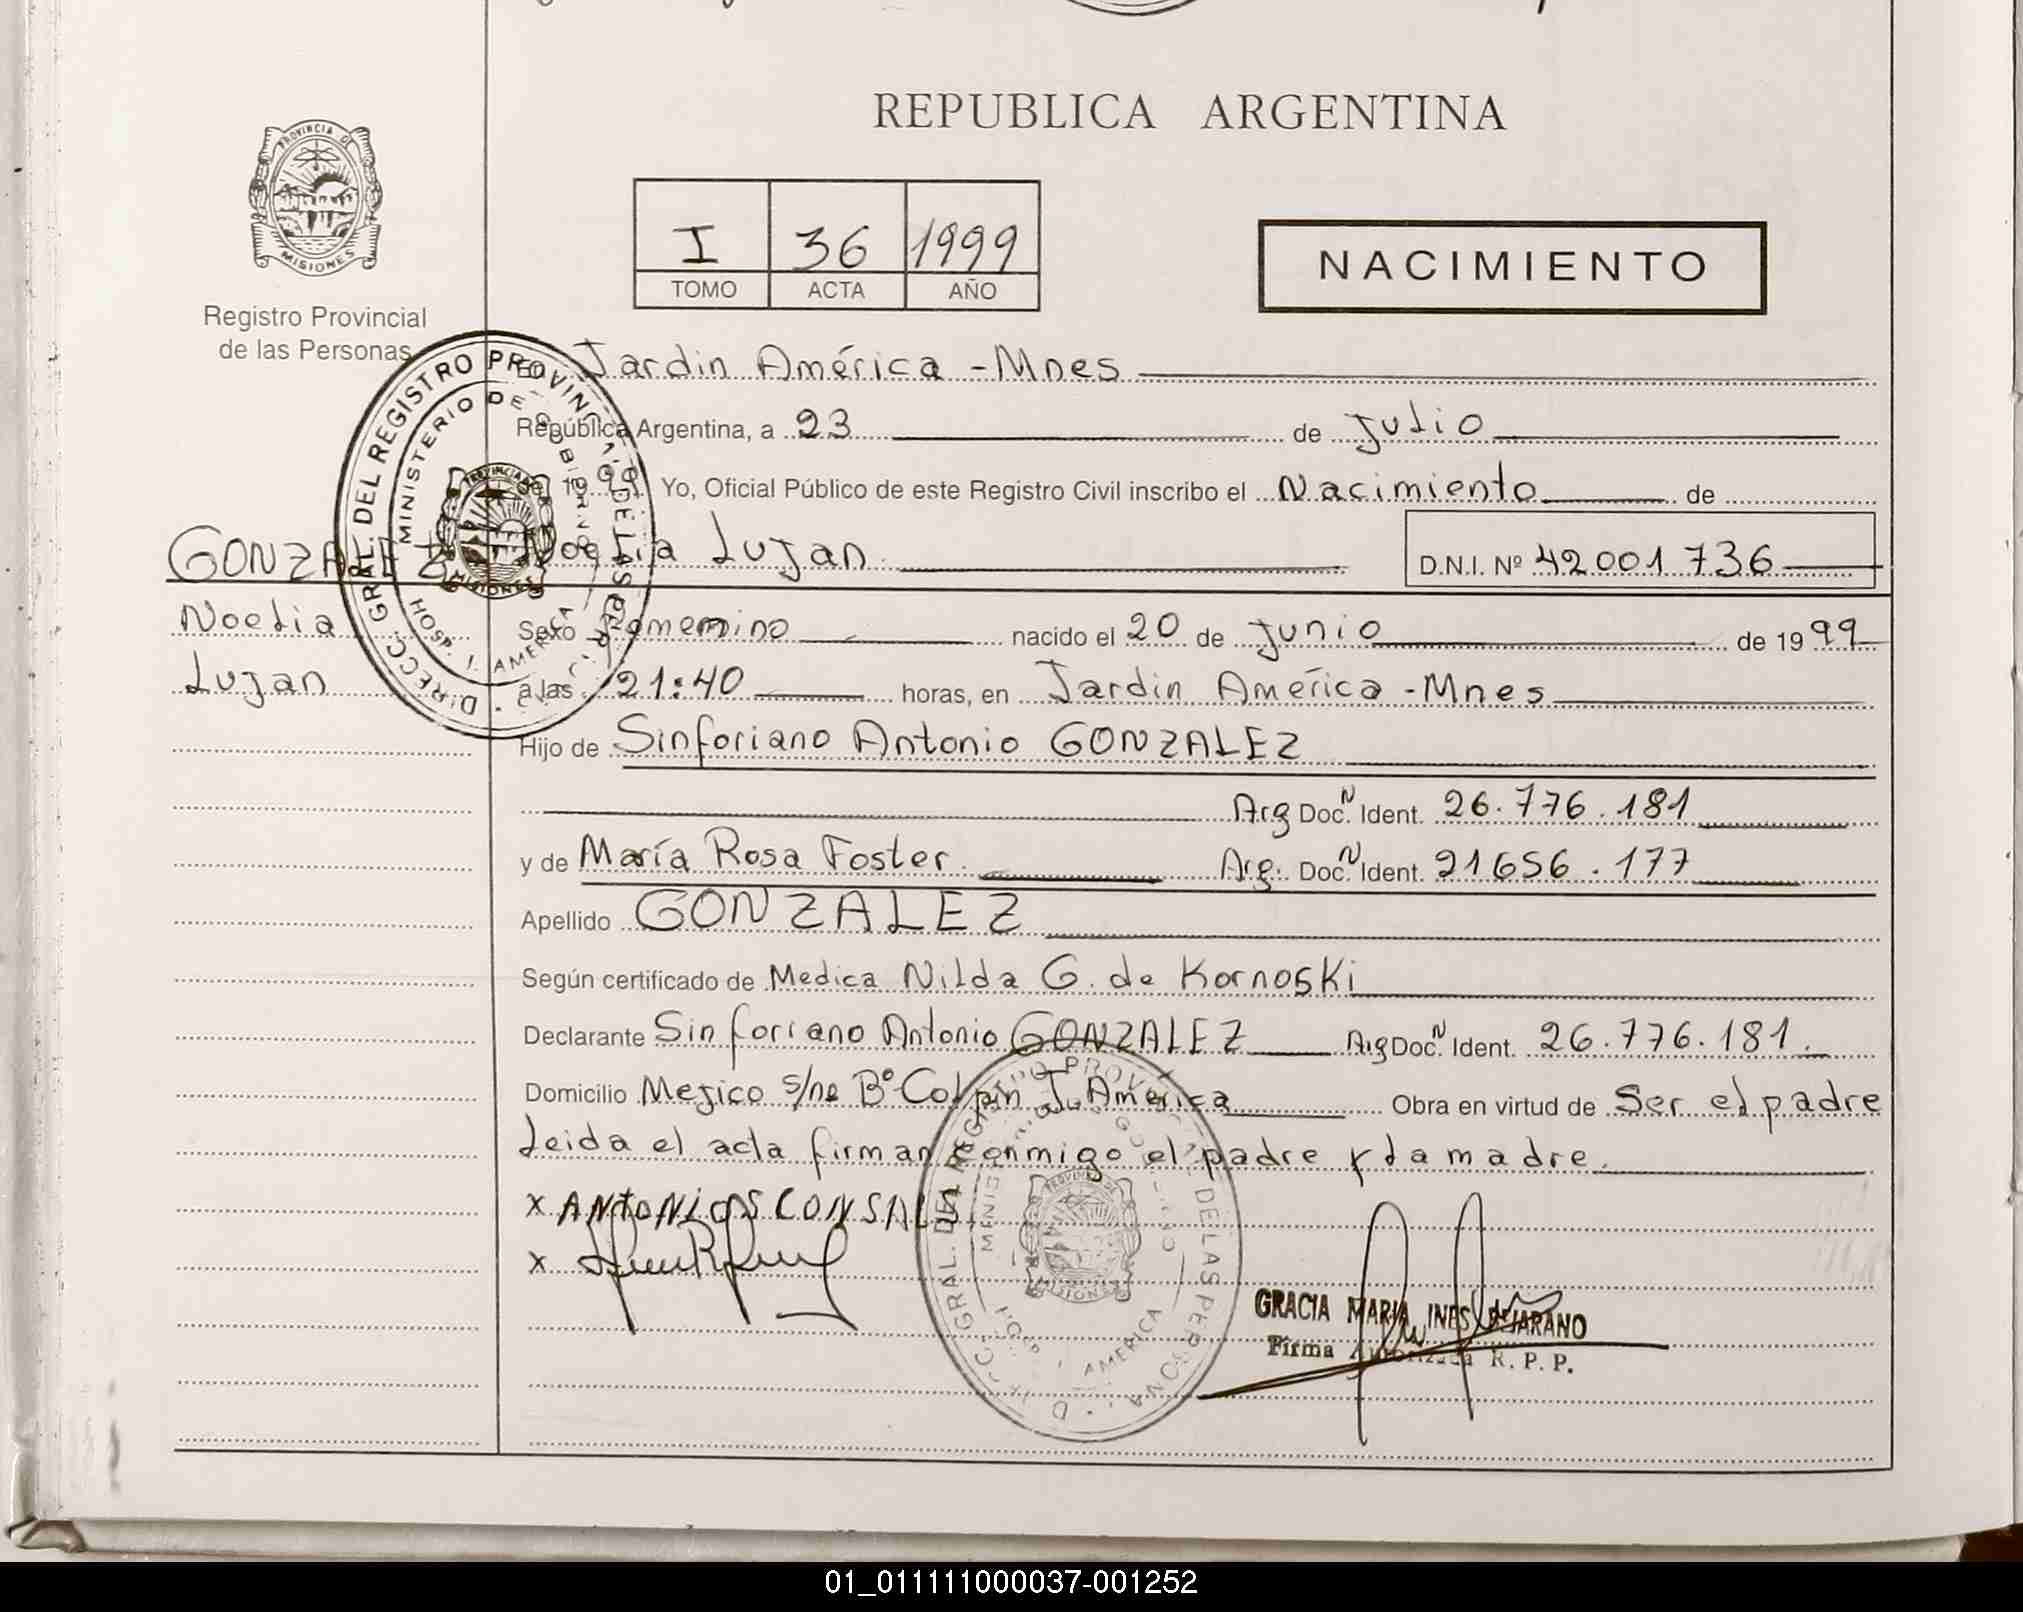 REPUBLICA ARGENTINA
PROVINCIA DE
MISIONES
Registro Provincial
de las Personas
I 36 1999
TOMO ACTA AÑO
NACIMIENTO
En Jardin América - Mnes
República Argentina, a 23 de Julio
de 1999 Yo, Oficial Público de este Registro Civil inscribo el Nacimiento de
GONZALEZ Noelia Lujan D.N.I. Nº 42001736
Noelia
Lujan
Sexo Femenino nacido el 20 de Junio de 1999
a las 21:40 horas, en Jardin América - Mnes
Hijo de Sinforiano Antonio GONZALEZ
Arg Doc. N Ident. 26.776.181
y de María Rosa Foster Arg. Doc. N Ident. 21656.177
Apellido GONZALEZ
Según certificado de Medica Nilda G. de Kornoski
Declarante Sinforiano Antonio GONZALEZ Arg Doc. N Ident. 26.776.181.
Domicilio Mejico s/nº Bº J. América Obra en virtud de Ser el padre
Leida el acta firman conmigo el padre y la madre.
x ANTONIO
x
GRACIA MARIA INES BEJARANO
Firma Autorizada R. P. P.
DIRECC. GRAL. DEL REGISTRO PROVINCIAL DE LAS PERSONAS
MINISTERIO DE GOBIERNO
HOSP. J. AMERICA
PROVINCIA DE
MISIONES
DIRECC. GRAL. DEL REGISTRO PROVINCIAL DE LAS PERSONAS
MINISTERIO DE GOBIERNO
HOSP. J. AMERICA
MISIONES
01_011111000037-001252